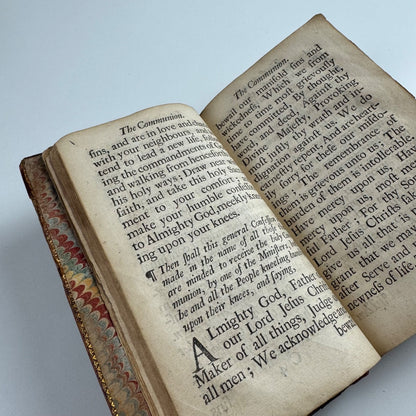 The Communion.
ſins, and are in love and
with your neighbours, and
tend to lead a new life,
ing the commandments
and walking from henceforth
his holy ways; Draw near
faith, and take this holy
ment to your comfort,
make your humble confeſſi
to Almighty God, meekly
ing upon your knees.
¶ Then ſhall this general Confeſſion
made in the name of all thoſe
are minded to receive the holy
munion, by one of the Miniſters
he and all the People kneeling
upon their knees, and ſaying,
ALmighty God, Father
our Lord Jeſus Chriſt
Maker of all things, Judge
all men; We acknowledge and
bewail
The Communion.
bewail our manifold ſins and
wickedneſs, Which we from
time to time moſt grievouſly
have committed, By thought,
word and deed, Againſt thy
Divine Majeſty, Provoking
moſt juſtly thy wrath and in-
dignation againſt us. We do
earneſtly repent, and are
for theſe our misdo
The remembrance of
them is grievous unto us; The
burden of them is intolerable.
Have mercy upon us,
mercy upon us, moſt
Father: For thy Son
Lord Jeſus Chriſt's
give us all that is
grant that we may
after Serve and
newneſs of life,